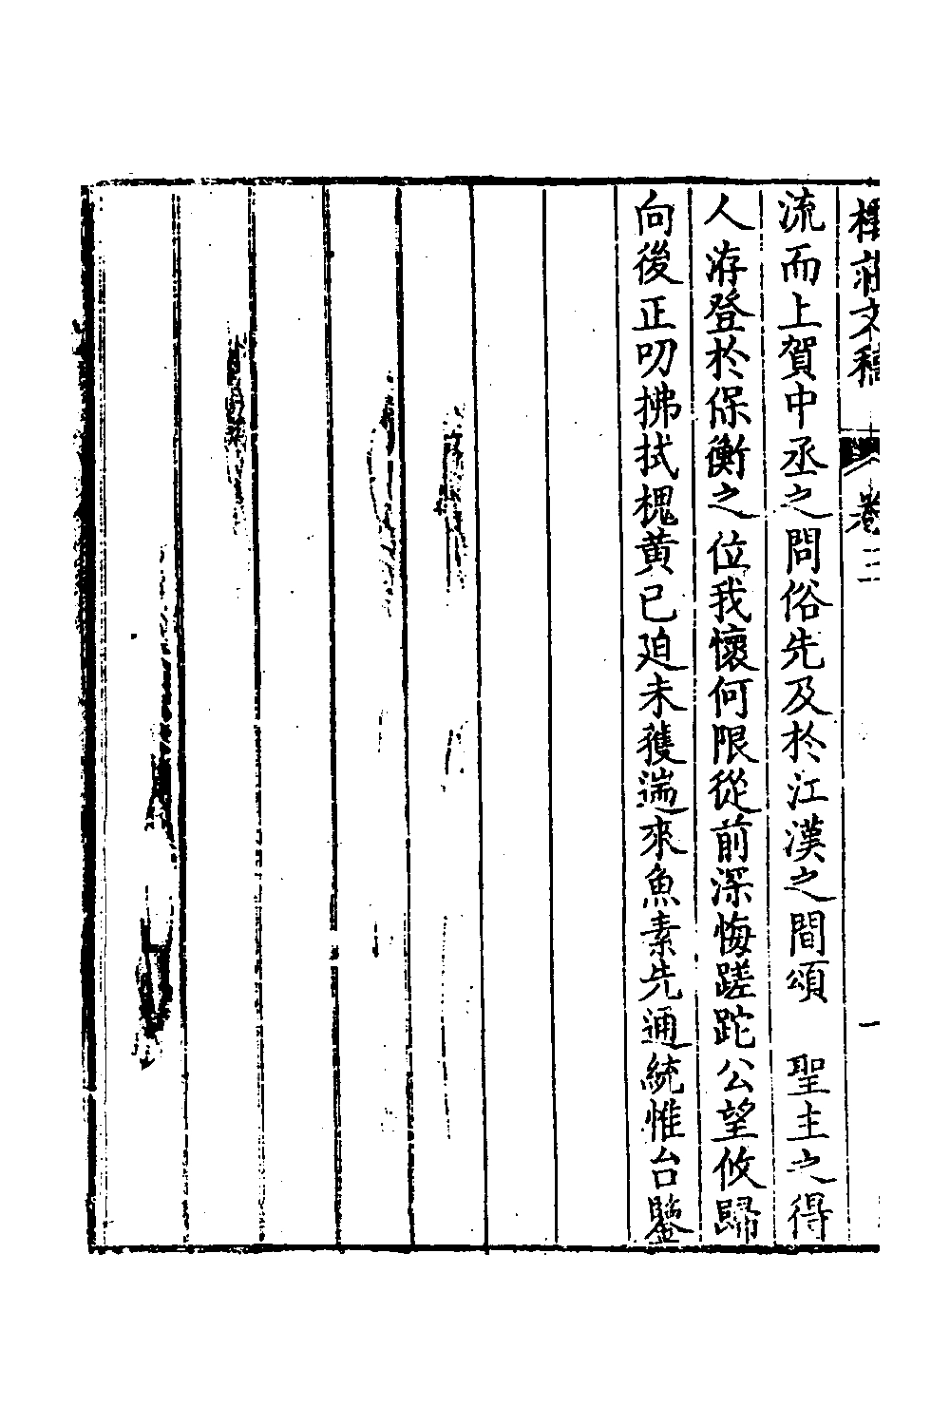 文稿 卷二 一
流而上賀中丞之問俗先及於江漢之間頌　聖主之得
人洊登於保衡之位我懷何限從前深悔蹉跎公望攸歸
向後正叨拂拭槐黃已廹未獲遄來魚素先通統惟台鑒